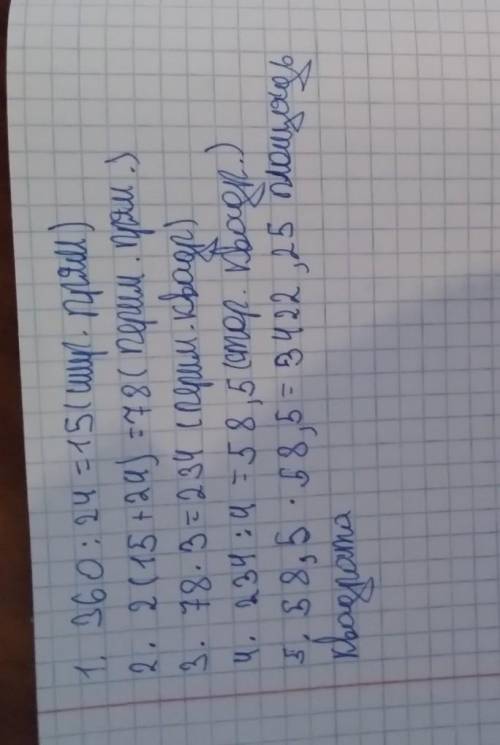 1. 360 : 24 = 15 (шир. прям)
2. 2 (15 + 24) = 78 (перим. прям.)
3. 78 · 3 = 234 (перим. квадр)
4. 234 : 4 = 58,5 (стор. квадр.)
5. 58,5 · 58,5 = 3422,25 площадь
квадрата